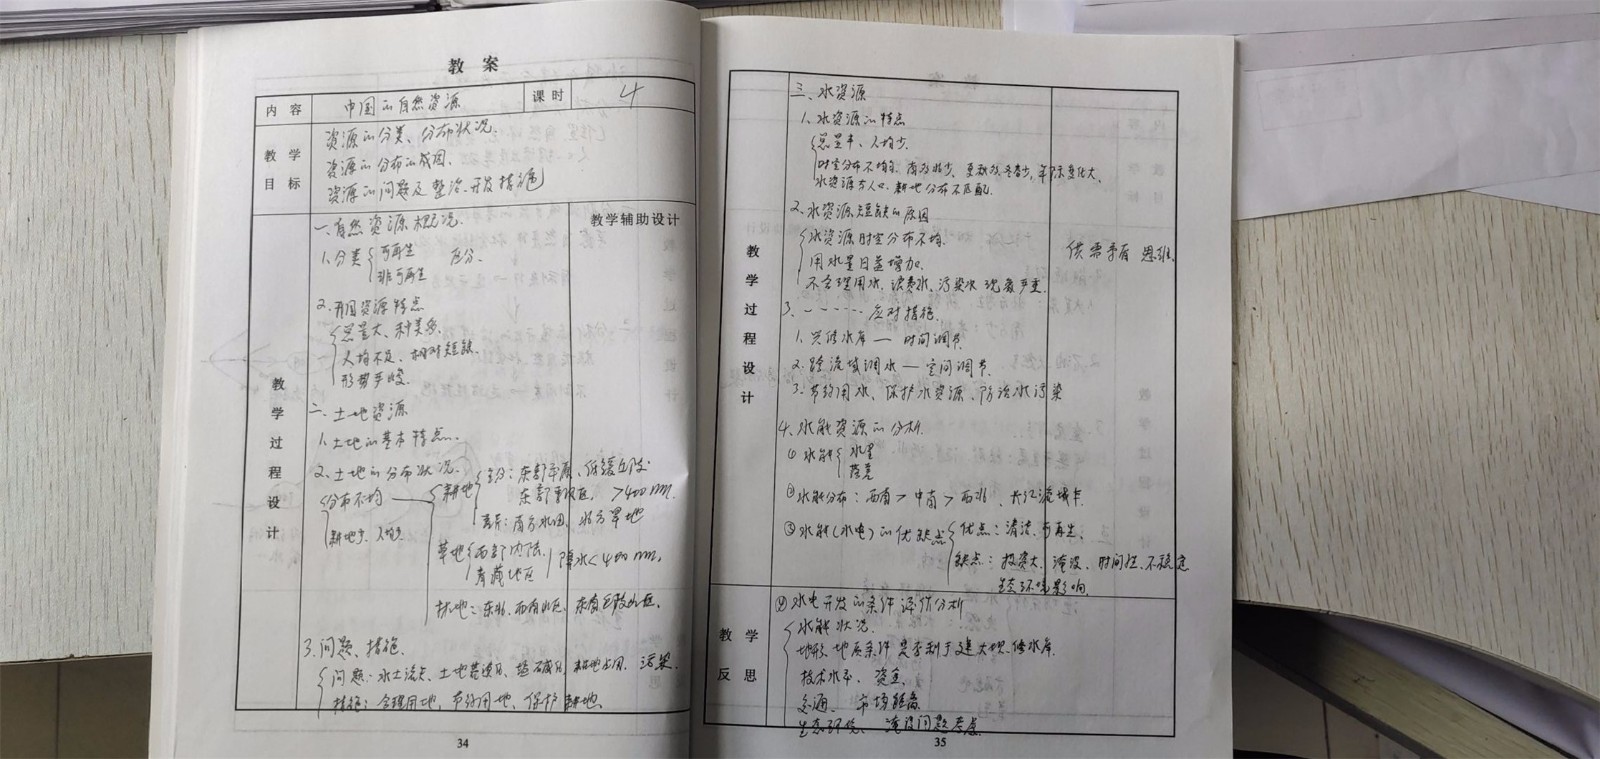 教 案
内 容 中国的自然资源 课时 4
教 学 目 标
资源的分类、分布状况.
资源的分布的成因.
资源的问题及整治、开发措施
教学过程设计
教学辅助设计
一.自然资源概况.
1.分类 可再生 区分.
非可再生
2.我国资源特点
总量大、种类多.
人均不足、相对短缺
形势严峻.
二、土地资源
1.土地的基本特点.
2.土地的分布状况.
分布不均
耕地少、人均少
耕地 主分:东部平原、低缓丘陵
东部季风区. >400mm.
差异:南方水田、北方旱地
草地 西部内陆. 降水<400mm.
青藏地区
林地:东北、西南山区、东南丘陵山区.
3.问题、措施
问题:水土流失、土地荒漠化、盐碱化、耕地占用、污染.
措施:合理用地,节约用地、保护耕地.
34
教学过程设计
三、水资源
1.水资源的特点
总量丰、人均少.
时空分布不均匀:南多北少、夏秋多冬春少,年际变化大、
水资源与人口、耕地分布不匹配.
2.水资源短缺的原因
水资源时空分布不均.
用水量日益增加.
不合理用水,浪费水、污染水现象严重.
供需矛盾 思维.
3.------应对措施.
1.兴修水库—时间调节
2.跨流域调水—空间调节.
3.节约用水、保护水资源、防治水污染
4.水能资源的分析.
①水能 水量
落差
②水能分布:西南>中南>西北、长江流域
③水能(水电)的优缺点 优点:清洁、可再生、
缺点:投资大、淹没、时间长、不稳定
生态环境影响
教 学 反 思
④水电开发的条件评价分析
水能状况.
地形、地质条件是否利于建大坝、修水库.
技术水平、资金.
交通、市场距离
生态环境、淹没问题考虑.
35